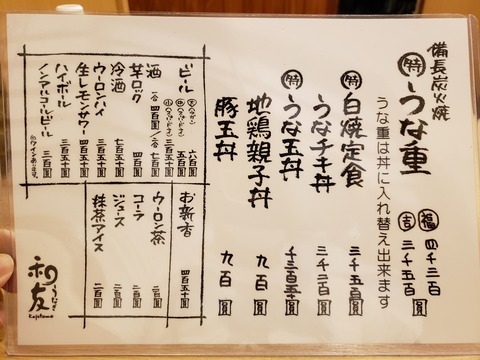 備長炭火焼
特 うな重
福 四千三百
吉 三千五百圓
うな重は丼に入れ替え出来ます
特 白焼定食 三千五百圓
うなチキ丼 三千三百圓
特 うな玉丼
地鶏親子丼 九百圓
豚玉丼 九百圓
ビール
五百圓
酒
芋ロック 四百圓
冷酒 七百圓
ウーロンハイ 三百五十圓
生レモンサワー 三百五十圓
ハイボール 三百五十圓
ノンアルコールビール 三百圓
お新香 四百五十圓
ウーロン茶 二百圓
コーラ 二百圓
ジュース 二百圓
抹茶アイス 二百圓
うなぎ
和友